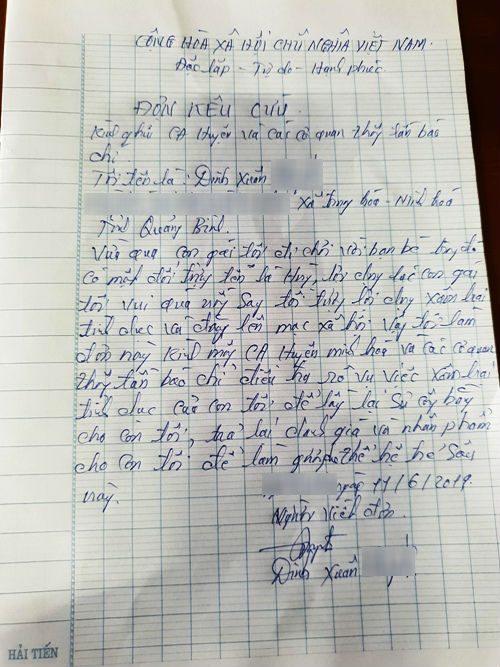 CỘNG HÒA XÃ HỘI CHỦ NGHĨA VIỆT NAM.
Độc lập - Tự do - Hạnh phúc
ĐƠN KÊU CỨU.
Kính gửi CA Huyện và các cơ quan thông tấn báo
chí.
Tôi tên là: Đinh Xuân
xã trung hóa - Minh hoá
Tỉnh Quảng Bình.
Vừa qua con gái tôi đi chơi với bạn bè trong đó
có một đối tượng tên là Huy, lợi dụng lúc con gái
tôi, vui quá uống say đối tượng lợi dụng xâm hại
tình dục và đăng lên mạc xã hội vậy tôi làm
đơn này kính mong CA Huyện minh hoá và các cơ quan
thông tấn báo chí điều tra rõ vụ việc xâm hại
tình dục của con tôi để lấy lại sự công bằng
cho con tôi, trả lại danh giá và nhân phẩm
cho con tôi để làm gương thế hệ sau
này.
ngày 11/6/2019.
Người viết đơn.
Đinh Xuân
HẢI TIẾN